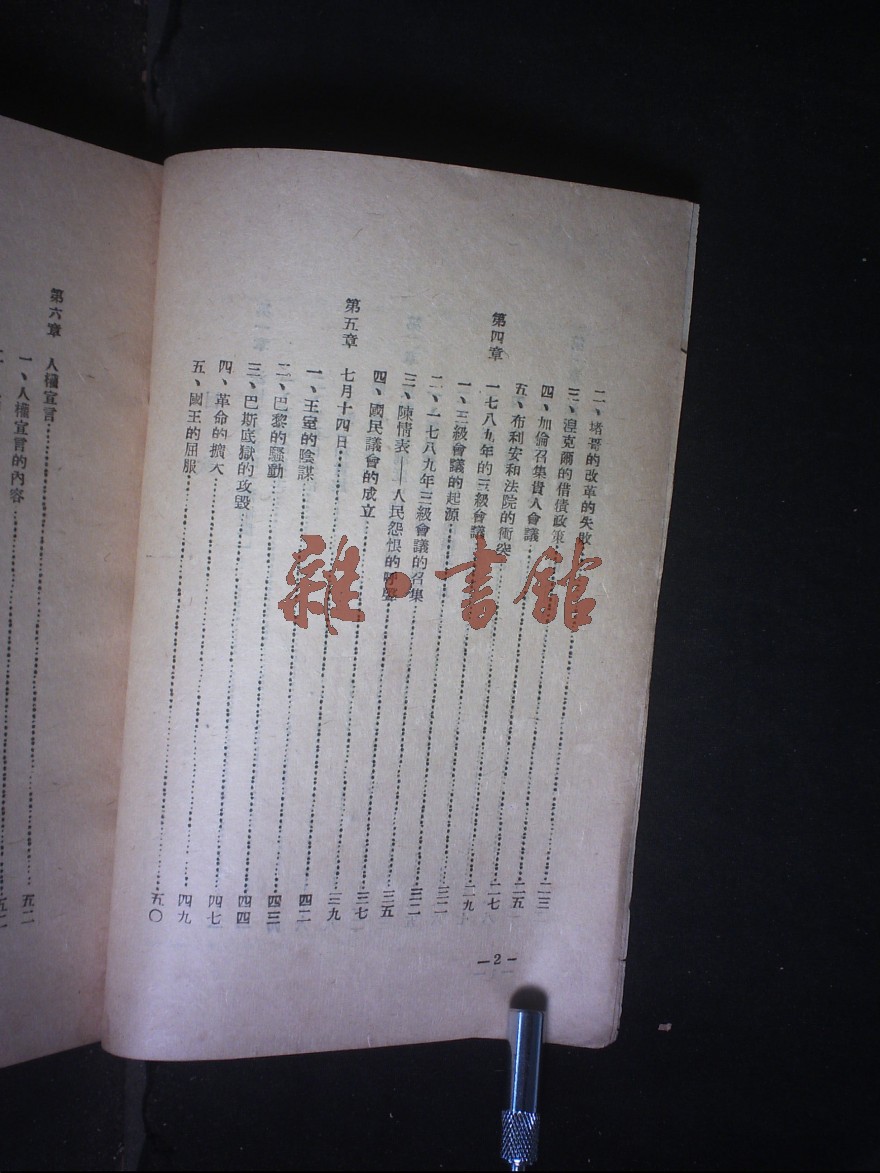 二、堵哥的改革的失敗……二三
三、湼克爾的借債政策……二五
四、加倫召集貴人會議……二七
五、布利安和法院的衝突……二九
第四章 一七八九年的三級會議……三二
一、三級會議的起源……三二
二、一七八九年三級會議的召集……三五
三、陳情表——人民怨恨的呼聲……三七
四、國民議會的成立……三九
第五章 七月十四日……四二
一、王室的陰謀……四二
二、巴黎的騷動……四三
三、巴斯底獄的攻毀……四四
四、革命的擴大……四七
五、國王的屈服……五〇
—2—
第六章 人權宣言……五二
一、人權宣言的內容……五二
雜·書館